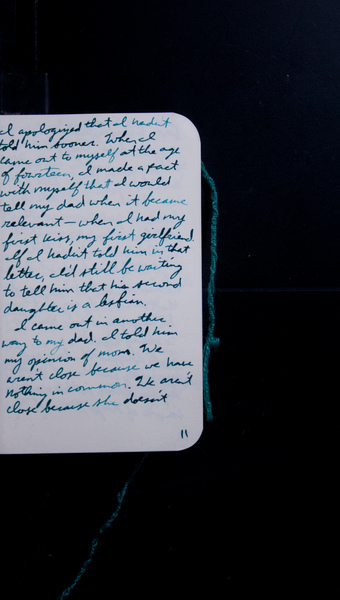 I apologized that I hadn't
told him sooner. When I
came out to myself at the age
of fourteen, I made a pact
with myself that I would
tell my dad when it became
relevant — when I had my
first kiss, my first girlfriend.
If I hadn't told him in that
letter, I'd still be waiting
to tell him that his second
daughter is a lesbian.
I came out in another
way to my dad. I told him
my opinion of mom. We
aren't close because we have
nothing in common. We aren't
close because she doesn't
11